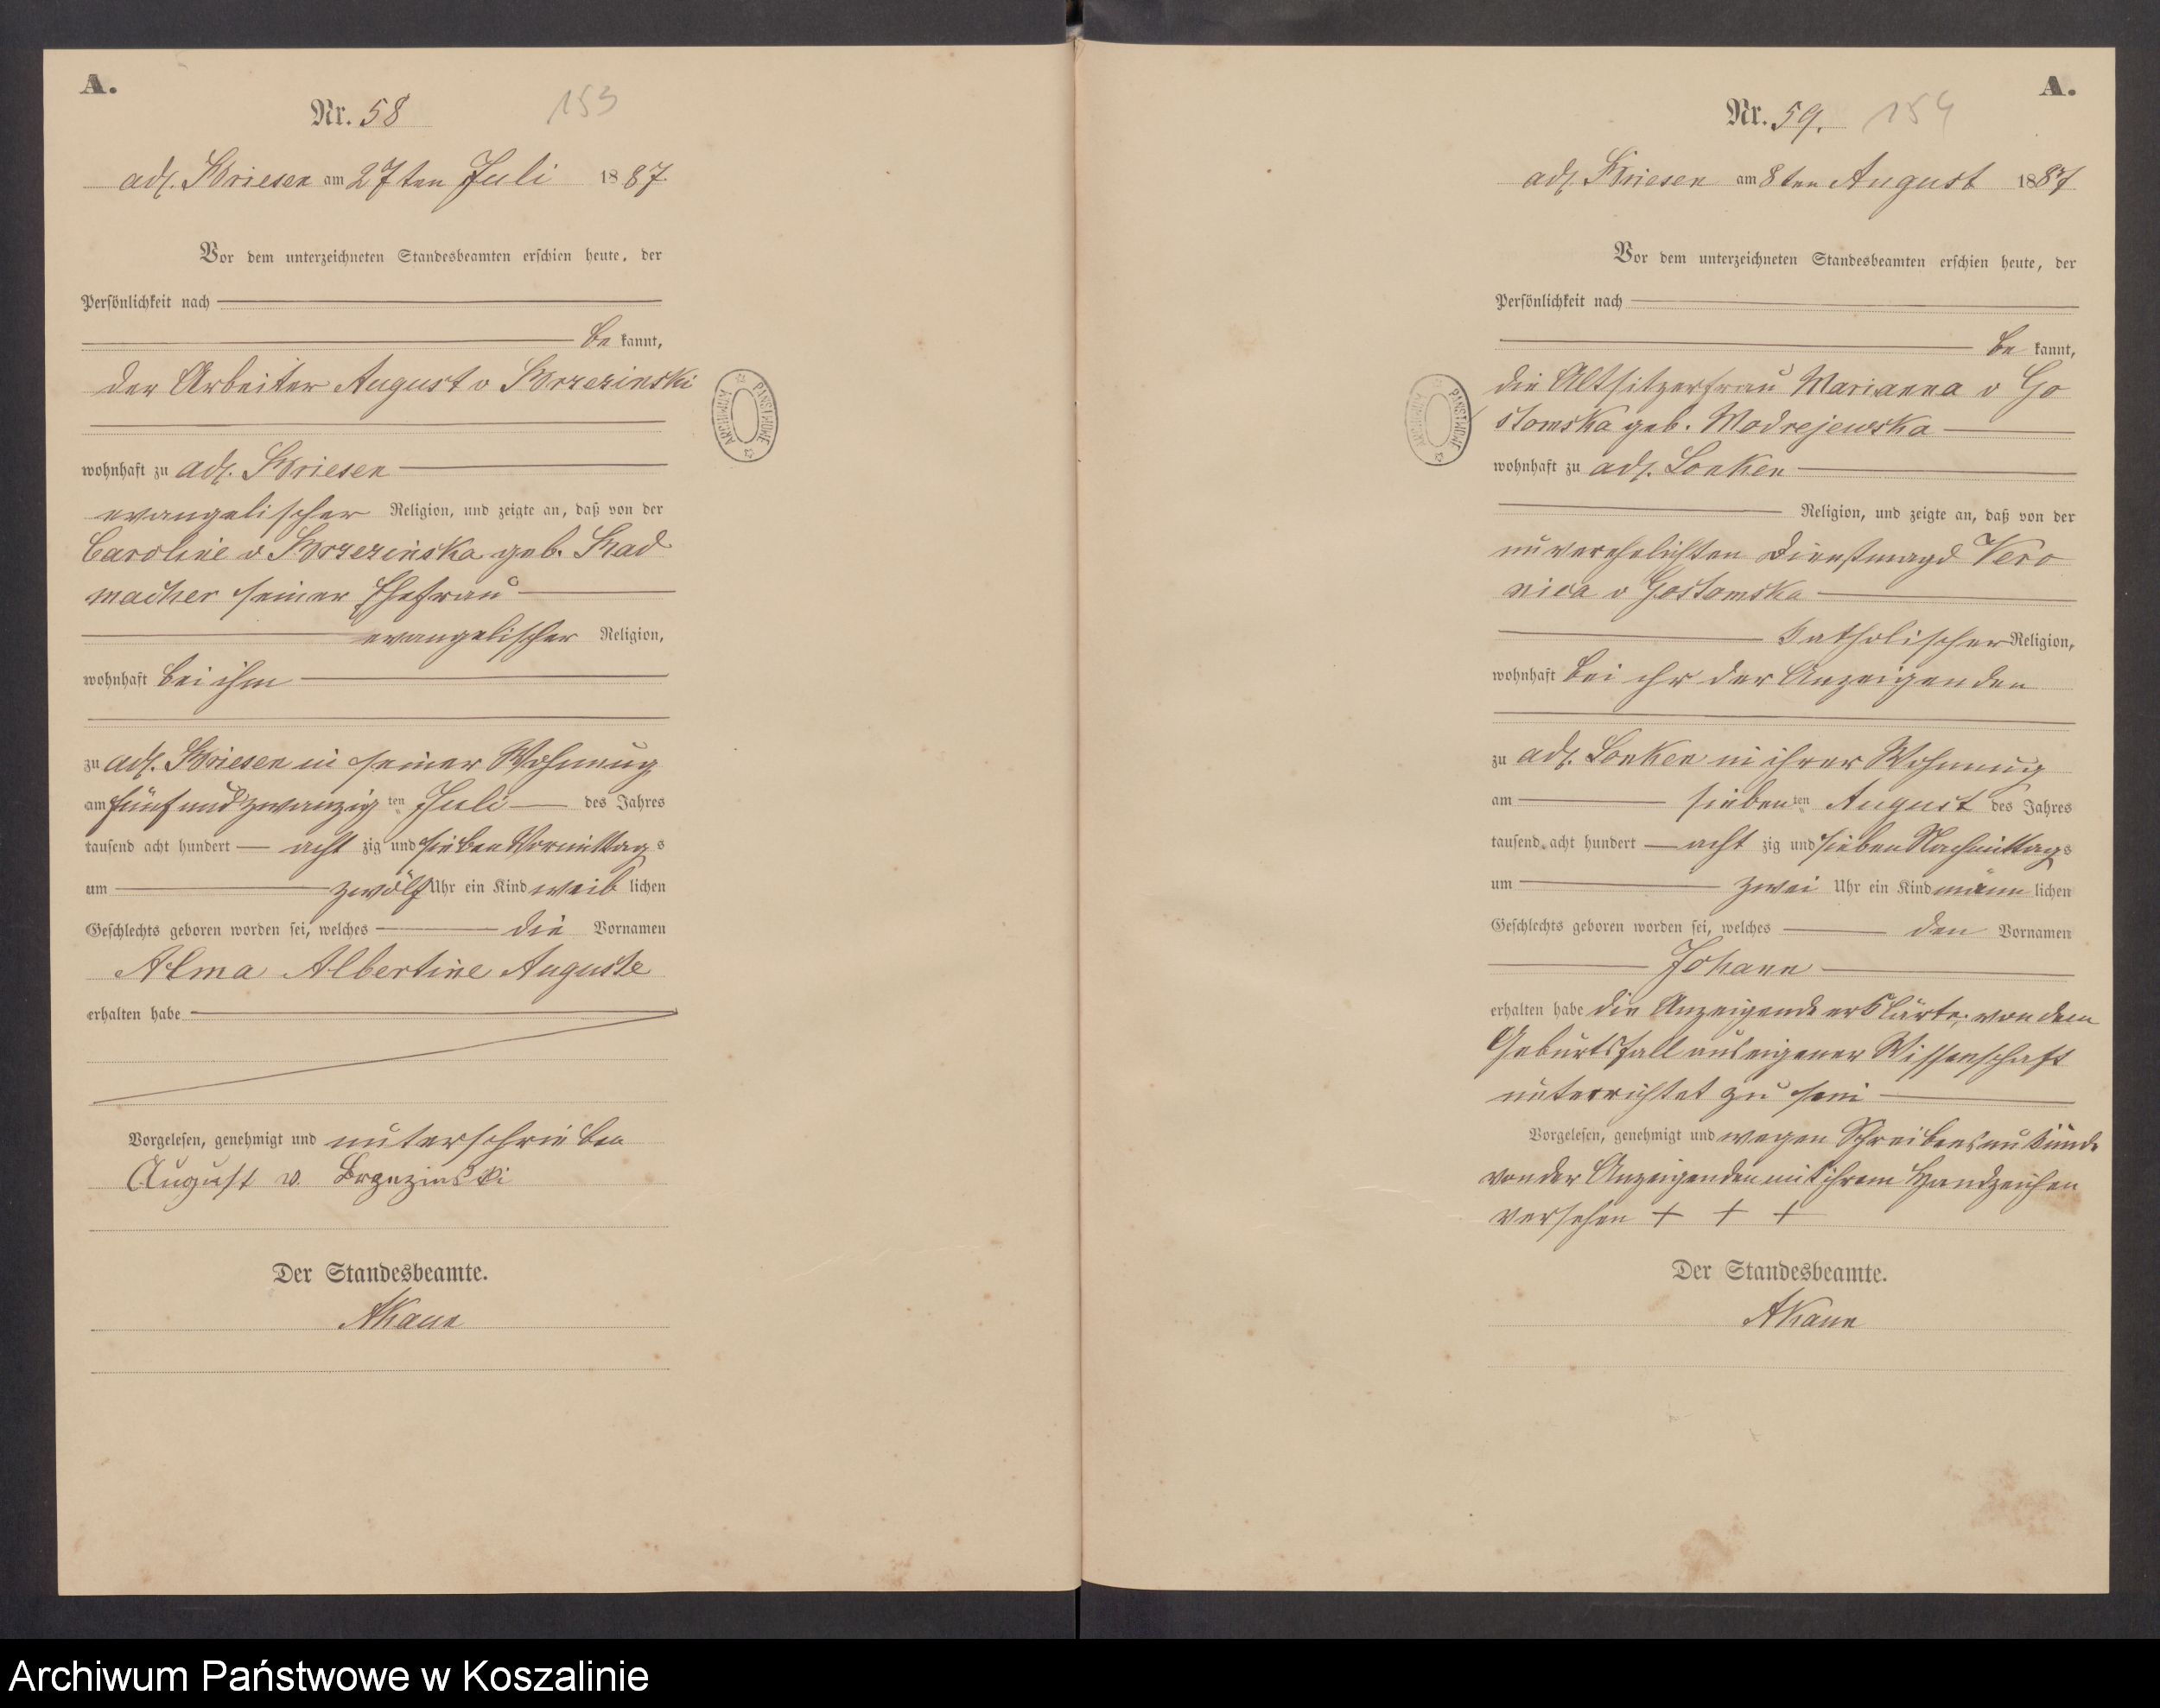 A.
Nr. 58
153
adl. Briesen am 27ten Juli 1887
Vor dem unterzeichneten Standesbeamten erschien heute, der
Persönlichkeit nach
be kannt,
der Arbeiter August v Brzezinski
wohnhaft zu adl. Briesen
evangelischer Religion, und zeigte an, daß von der
Caroline v Brzezinska geb. Rad
macher seiner Ehefrau
evangelischer Religion,
wohnhaft bei ihm
zu adl. Briesen in seiner Wohnung
am fünf und zwanzig ten Juli des Jahres
tausend acht hundert acht zig und sieben Vormittag s
um zwölf Uhr ein Kind weib lichen
Geschlechts geboren worden sei, welches die Vornamen
Alma Albertine Auguste
erhalten habe
Vorgelesen, genehmigt und unterschrieben
August v. Brzezinski
Der Standesbeamte.
AKann
ARCHIWUM PAŃSTWOWE
A.
Nr. 59.
154
adl. Briesen am 8ten August 1887
Vor dem unterzeichneten Standesbeamten erschien heute, der
Persönlichkeit nach
be kannt,
die Altsitzerfrau Marianna v Go
stomska geb. Modrejewska
wohnhaft zu adl. Lonken
Religion, und zeigte an, daß von der
unverehelichten Dienstmagd Vero
nica v Gostomska
katholischer Religion,
wohnhaft bei ihr der Anzeigenden
zu adl. Lonken in ihrer Wohnung
am sieben ten August des Jahres
tausend acht hundert acht zig und sieben Nachmittags
um zwei Uhr ein Kind männ lichen
Geschlechts geboren worden sei, welches den Vornamen
Johann
erhalten habe die Anzeigende erklärte, von dem
Geburtsfall aus eigener Wissenschaft
unterrichtet zu sein
Vorgelesen, genehmigt und wegen Schreibensunkunde
von der Anzeigenden mit ihrem Handzeichen
versehen + + +
Der Standesbeamte.
AKann
ARCHIWUM PAŃSTWOWE
Archiwum Państwowe w Koszalinie